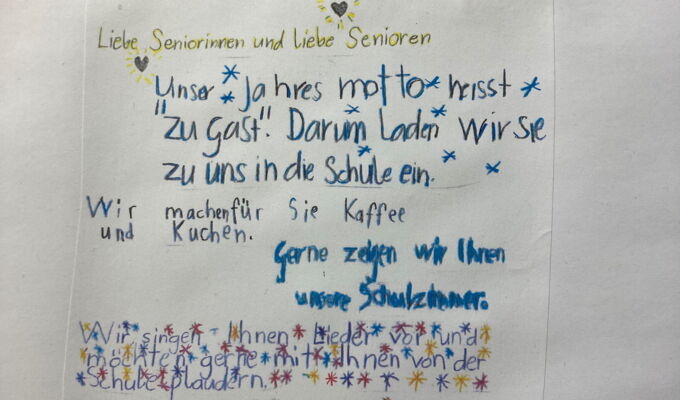 Liebe Seniorinnen und liebe Senioren
Unser Jahres motto heisst
"Zu Gast". Darum laden wir sie
zu uns in die Schule ein.
Wir machen für Sie Kaffee
und Kuchen.
Gerne zeigen wir Ihnen
unsere Schulzimmer.
Wir singen Ihnen Lieder vor und
möchten gerne mit Ihnen von der
Schule plaudern.